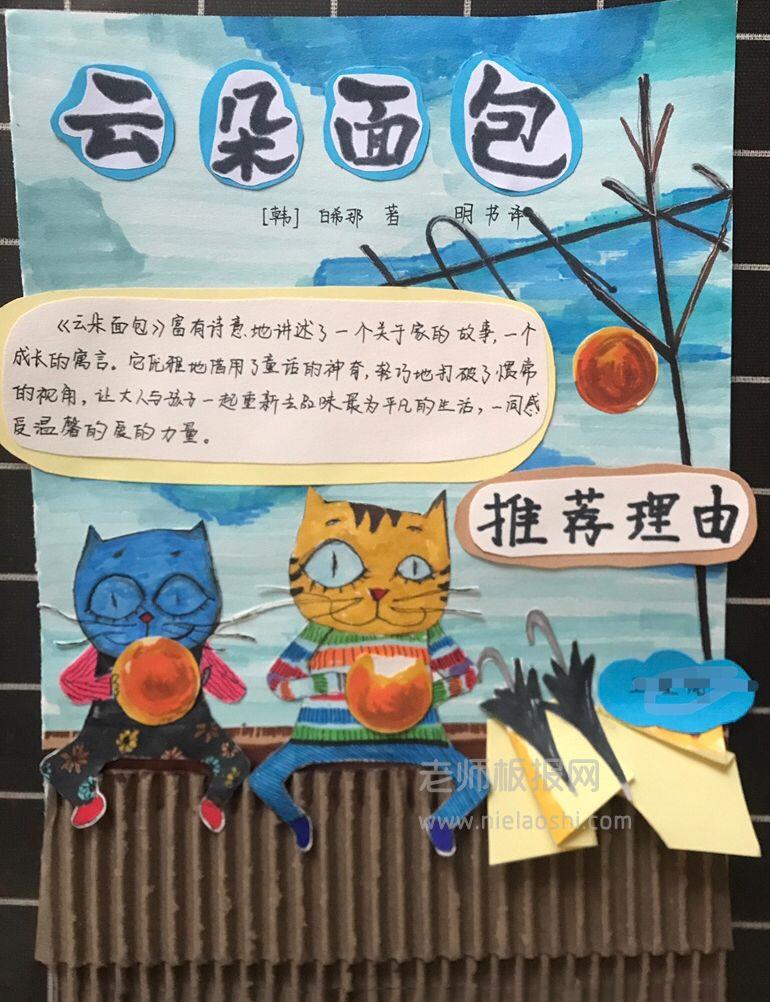 云朵面包
[韩] 白希那 著 明书译
《云朵面包》富有诗意地讲述了一个关于家的故事,一个
成长的寓言。它优雅地借用了童话的神奇,轻巧地打破了惯常
的视角,让大人与孩子一起重新去品味最为平凡的生活,一同感
受温馨的爱的力量。
推荐理由
老师板报网
www.nielaoshi.com